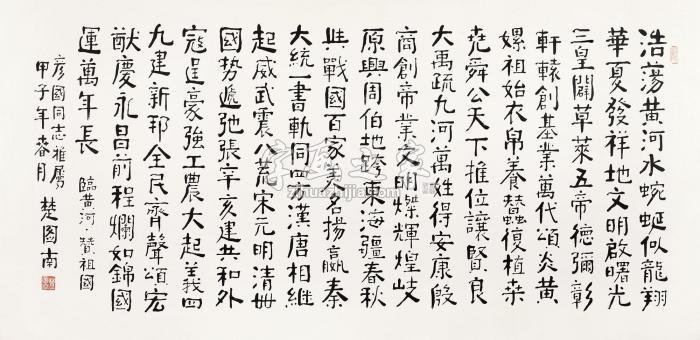 浩蕩黃河水蜿蜒似龍翔
華夏發祥地文明啟曙光
三皇闢草萊五帝德彌彰
軒轅創基業萬代頌炎黃
嫘祖始衣帛養蠶復植桒
堯舜公天下推位讓賢良
大禹疏九河萬姓得安康殷
商創帝業文明燦輝煌岐
原興周伯地跨東海疆春秋
與戰國百家美名揚嬴秦
大統一書軌同四方漢唐相繼
起威武震八荒宋元明清世
國勢遞弛張辛亥建共和外
寇逞豪強工農大起義四
九建新邦全民齊聲頌宏
猷慶永昌前程爛如錦國
運萬年長 臨黃河·贊祖國
彥國同志雅屬
甲子年春月 楚圖南